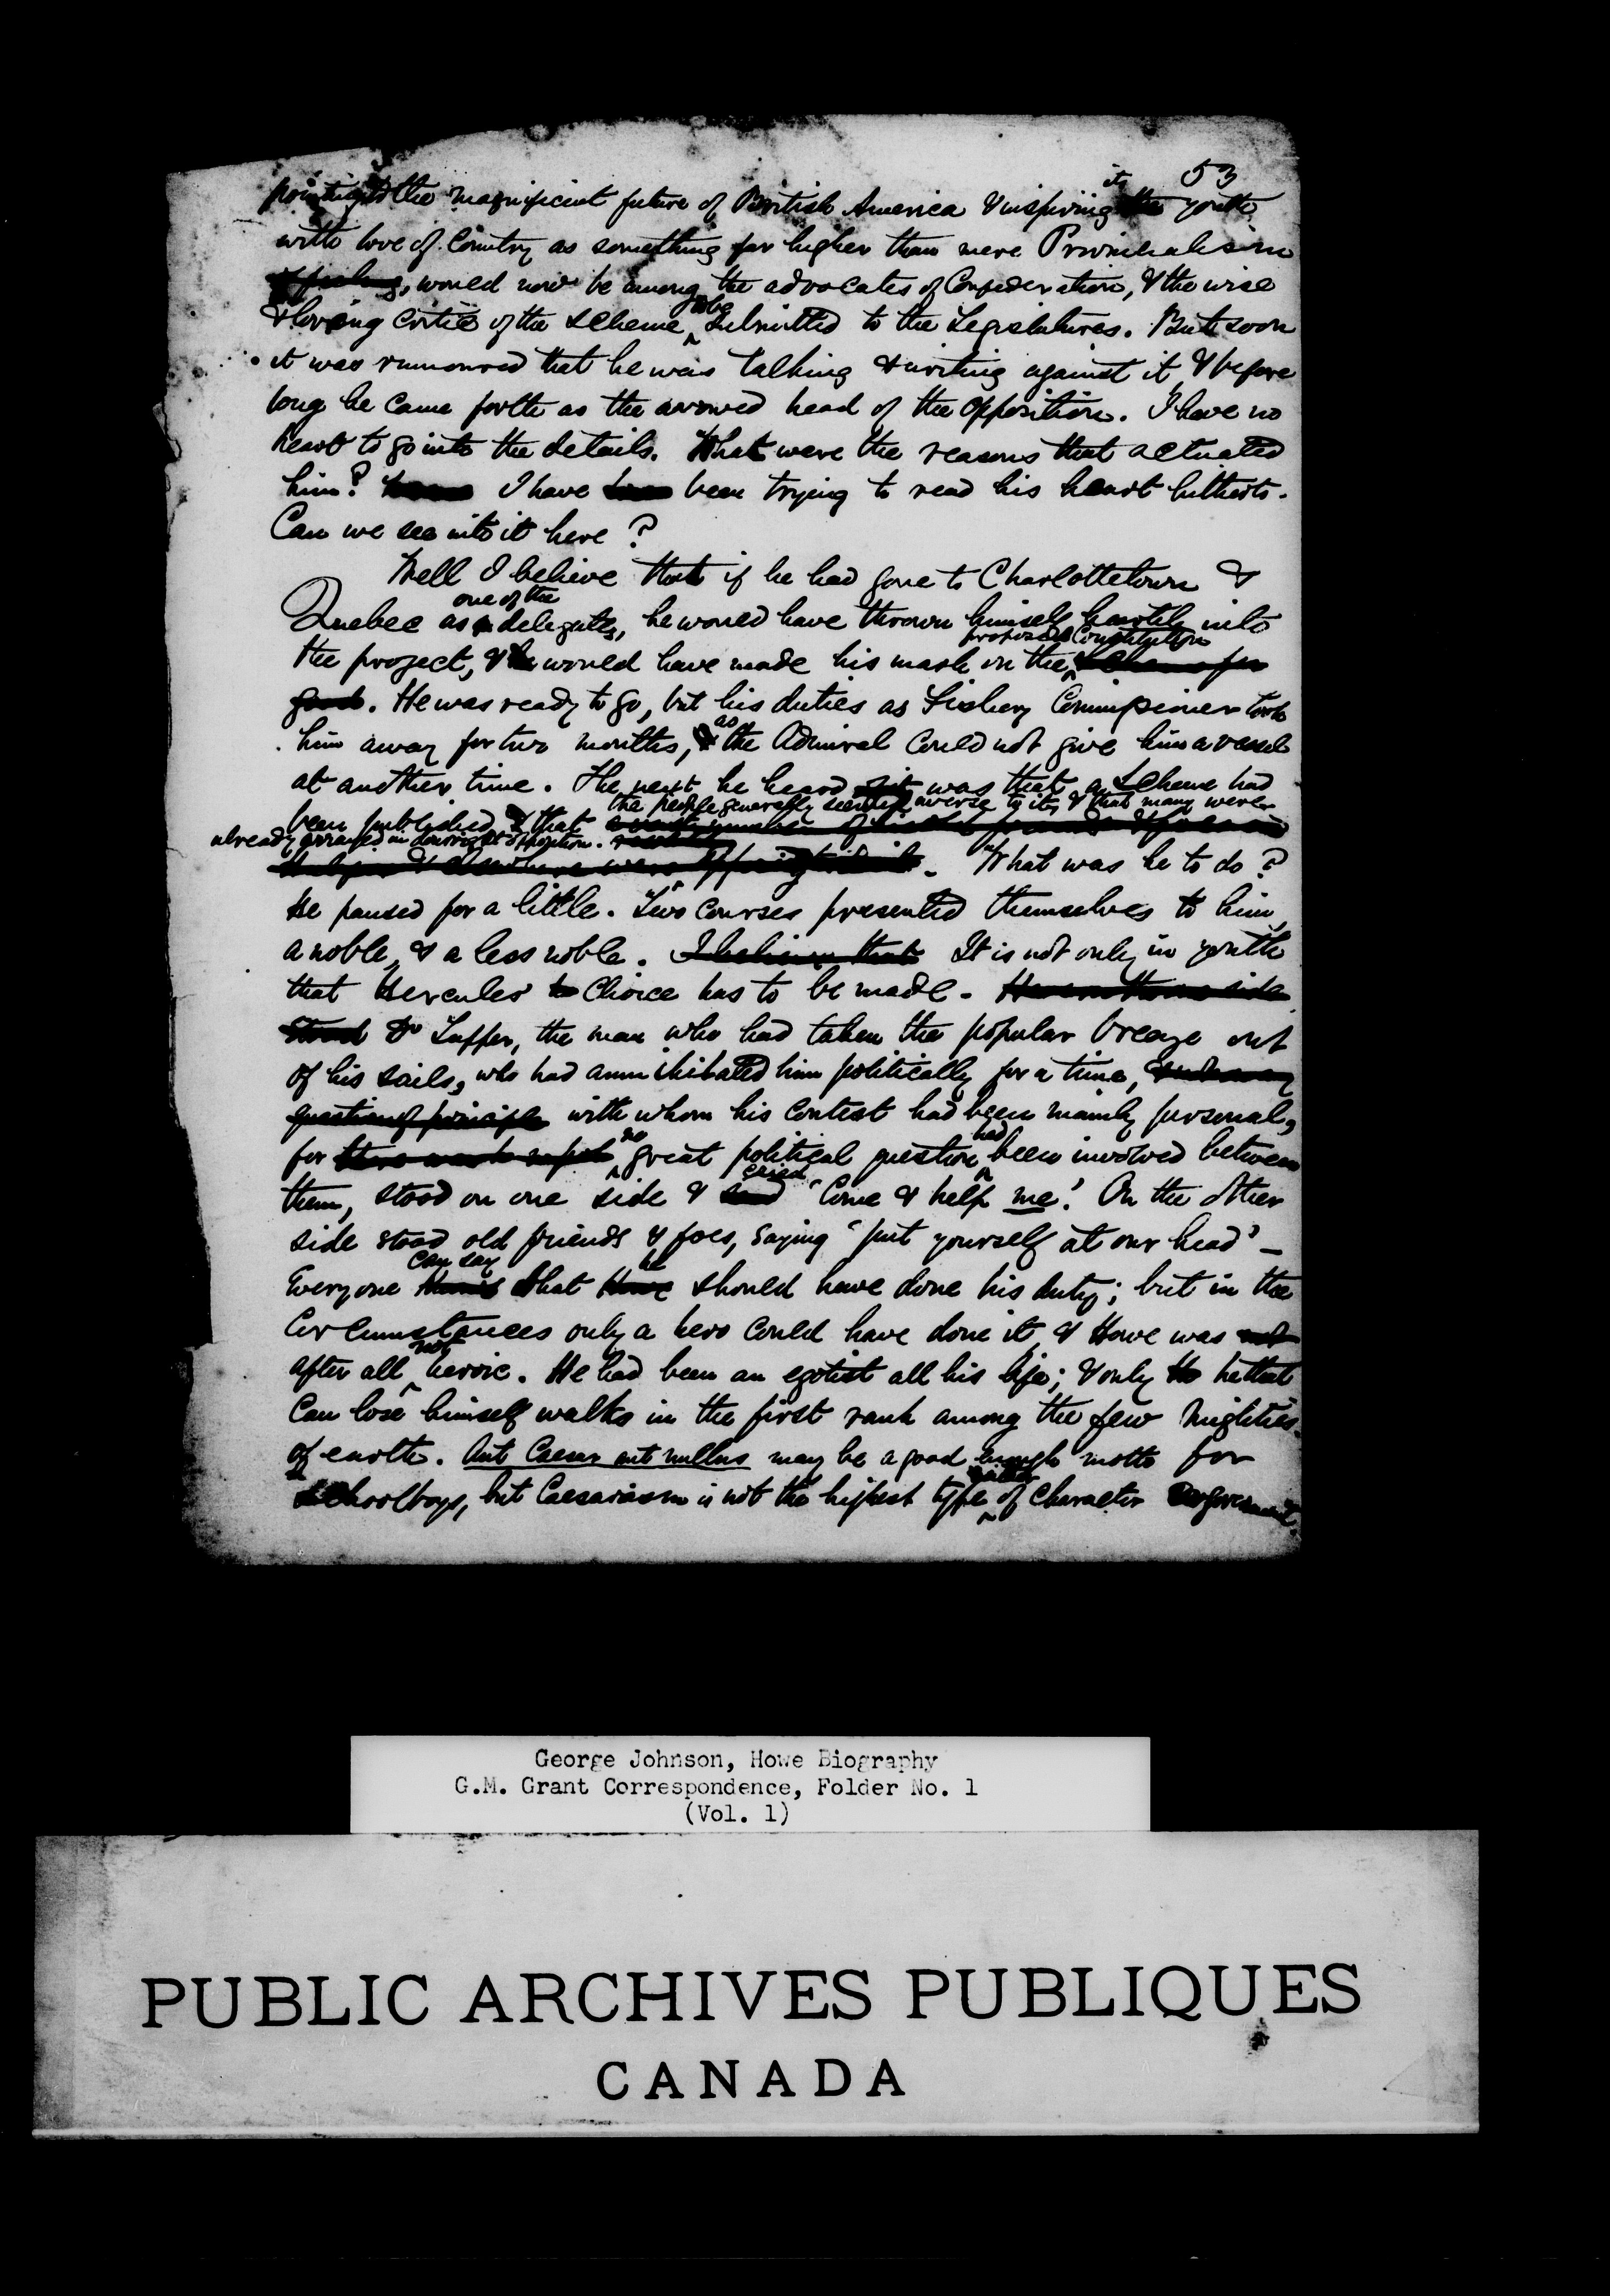 53
pointing to the magnificent future of British America & inspiring its youth
with love of Country as something far higher than mere Provincialism
would now be among the advocates of Confederation, & the wise
& loving critic of the scheme to be submitted to the Legislatures. But soon
it was rumoured that he was talking & writing against it, & before
long he came forth as the avowed head of the opposition. I have no
heart to go into the details. What were the reasons that actuated
him? I have been trying to read his heart hitherto.
Can we see into it here?
Well I believe that if he had gone to Charlottetown &
Quebec as one of the delegates, he would have thrown himself heartily into
the project, & would have made his mark on the proposed Constitution
good. He was ready to go, but his duties as Fishery Commissioner took
him away for two months, as the Admiral could not give him a vessel
at another time. The next he heard was that a scheme had
been published & that the people generally seemed averse to it, & that many were
already arrayed in downright opposition. What was he to do?
He paused for a little. Two courses presented themselves to him,
a noble, & a less noble. I believe that It is not only in youth
that Hercules' choice has to be made.
Dr Tupper, the man who had taken the popular breeze out
of his sails, who had annihilated him politically for a time,
question of principle with whom his contest had been mainly personal,
for no great political question had been involved between
them, stood on one side & cried 'Come & help me'. On the other
side stood old friends & foes, saying 'put yourself at our head' —
Everyone can say that he should have done his duty; but in the
circumstances only a hero could have done it, & Howe was not
after all not heroic. He had been an egotist all his life; & only he that
can lose himself walks in the first rank among the few mighties
of earth. Aut Caesar aut nullus may be a good enough motto for
schoolboys, but Caesarism is not the highest type of character or government.
George Johnson, Howe Biography
G.M. Grant Correspondence, Folder No. 1
(Vol. 1)
PUBLIC ARCHIVES PUBLIQUES
CANADA